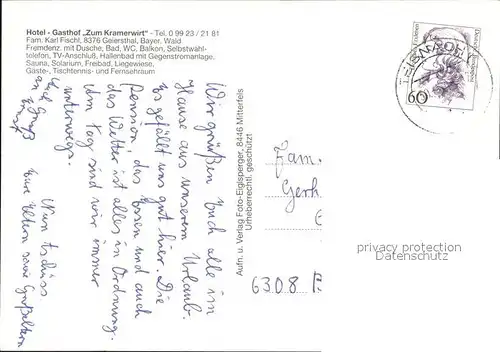 Hotel - Gasthof „Zum Kramerwirt“ - Tel. 0 99 23 / 21 81
Fam. Karl Fischl, 8376 Geiersthal, Bayer. Wald
Fremdenz. mit Dusche, Bad, WC, Balkon, Selbstwähl-
telefon, TV-Anschluß, Hallenbad mit Gegenstromanlage.
Sauna, Solarium, Freibad, Liegewiese.
Gäste-, Tischtennis- und Fernsehraum
Wir grüßen Euch alle im
Hause aus unserem Urlaub.
Es gefällt uns gut hier. Die
Pension, das Essen und auch
das Wetter ist alles in Ordnung.
Am Tag sind wir immer
unterwegs.
Nun tschüss
Eure Eltern sowie Großeltern
Gruß
Aufn. u. Verlag Foto-Eiglsperger, 8446 Mitterfels
Urheberrechtl. geschützt
Fam.
Gerh
6308
60
Deutsche Bundespost
privacy protection
Datenschutz